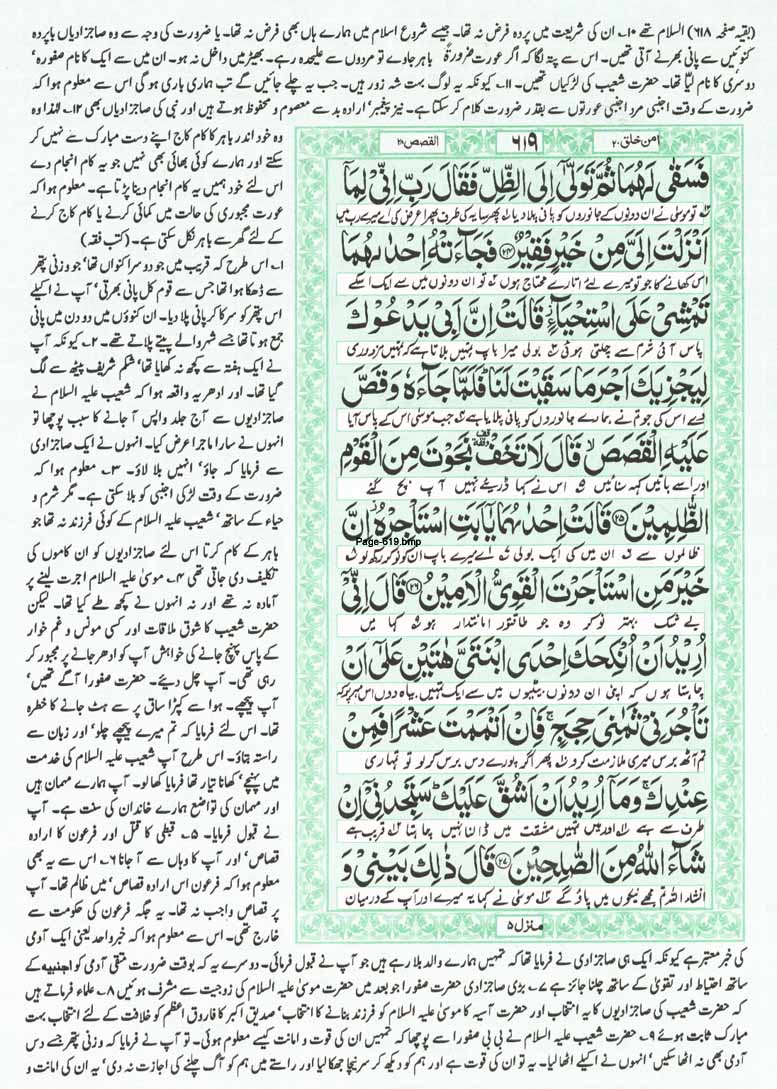 (بقیہ صفحہ ۶۱۸) السلام تھے ۱۰۔ ان کی شریعت میں پردہ فرض نہ تھا۔ جیسے شروع اسلام میں ہمارے ہاں بھی فرض نہ تھا۔ یا ضرورت کی وجہ سے وہ صاجزادیاں باپردہ
کنوئیں سے پانی بھرنے آتی تھیں۔ اس سے پتہ لگا کہ اگر عورت ضرورۃً باہر جاوے تو مردوں سے علیحدہ رہے۔ بھیڑ میں داخل نہ ہو۔ ان میں سے ایک کا نام صفورہ،
دوسری کا نام لیّا تھا۔ حضرت شعیب کی لڑکیاں تھیں۔ ۱۱۔ کیونکہ یہ لوگ بہت شہ زور ہیں۔ جب یہ چلے جائیں گے تب ہماری باری ہو گی اس سے معلوم ہوا کہ
ضرورت کے وقت اجنبی مرد اجنبی عورتوں سے بقدر ضرورت کلام کر سکتا ہے۔ نیز پیغمبر' ارادہ بد سے معصوم و محفوظ ہوتے ہیں اور نبی کی صاجزادیاں بھی ۱۲۔ لہٰذا وہ
وہ خود اندر باہر کا کام کاج اپنے دست مبارک سے نہیں کر
سکتے اور ہمارے کوئی بھائی بھی نہیں جو یہ کام انجام دے
اس لئے خود ہمیں یہ کام انجام دینا پڑتا ہے۔ معلوم ہوا کہ
عورت مجبوری کی حالت میں کمائی کرنے یا کام کاج کرنے
کے لئے گھر سے باہر نکل سکتی ہے۔ (کتب فقہ)
۱۔ اس طرح کہ قریب میں جو دوسرا کنواں تھا' جو وزنی پتھر
سے ڈھکا ہوا تھا جس سے قوم کل پانی بھرتی' آپ نے اکیلے
اس پتھر کو سرکا کر پانی پلا دیا۔ ان کنوؤں میں دو دن میں پانی
جمع ہوتا تھا جسے شہر والے پیتے پلاتے تھے۔ ۲۔ کیونکہ آپ
نے ایک ہفتہ سے کچھ نہ کھایا تھا' شکم شریف پیٹھ سے لگ
گیا تھا۔ اور ادھر یہ واقعہ ہوا کہ شعیب علیہ السلام نے
صاجزادیوں سے آج جلد واپس آ جانے کا سبب پوچھا تو
انہوں نے سارا ماجرا عرض کیا۔ انہوں نے ایک صاجزادی
سے فرمایا کہ جاؤ' انہیں بلا لاؤ۔ ۳۔ معلوم ہوا کہ
ضرورت کے وقت لڑکی اجنبی کو بلا سکتی ہے۔ مگر شرم و
حیاء کے ساتھ' شعیب علیہ السلام کے کوئی فرزند نہ تھا جو
باہر کے کام کرتا اس لئے صاجزادیوں کو ان کاموں کی
تکلیف دی جاتی تھی ۴۔ موسیٰ علیہ السلام اجرت لینے پر
آمادہ نہ تھے اور نہ انہوں نے کچھ طے کیا تھا۔ لیکن
حضرت شعیب کا شوق ملاقات اور کسی مونس و غم خوار
کے پاس پہنچ جانے کی خواہش آپ کو ادھر جانے پر مجبور کر
رہی تھی۔ آپ چل دیئے۔ حضرت صفورا آگے تھیں'
آپ پیچھے۔ ہوا سے کپڑا ساق پر سے ہٹ جانے کا خطرہ
تھا۔ اس لئے فرمایا کہ تم میرے پیچھے چلو' اور زبان سے
راستہ بتاؤ۔ اس طرح آپ شعیب علیہ السلام کی خدمت
میں پہنچے' کھانا تیار تھا فرمایا کھا لو۔ آپ ہمارے مہمان ہیں
اور مہمان کی تواضع ہمارے خاندان کی سنت ہے۔ آپ
نے قبول فرمایا۔ ۵۔ قبطی کا قتل اور فرعون کا ارادہ
قصاص' اور آپ کا وہاں سے آ جانا ۶۔ اس سے یہ بھی
معلوم ہوا کہ فرعون اس ارادہ قصاص' میں ظالم تھا۔ آپ
پر قصاص واجب نہ تھا۔ یہ جگہ فرعون کی حکومت سے
خارج تھی۔ اس سے معلوم ہوا کہ خبر واحد یعنی ایک آدمی
امن خلق ۲۰
۶۱۹
القصص ۲۸
فَسَقٰى لَهُمَا ثُمَّ تَوَلّٰۤى اِلَى الظِّلِّ فَقَالَ رَبِّ اِنِّیْ لِمَاۤ
تو موسٰی نے ان دونوں کے جانوروں کو پانی پلا دیا پھر سایہ کی طرف پھرا عرض کی اے میرے رب میں
اَنْزَلْتَ اِلَیَّ مِنْ خَیْرٍ فَقِیْرٌ ﴿۲۴﴾ فَجَآءَتْهُ اِحْدٰىهُمَا
اس کھانے کا جو تو میرے لئے اتارے محتاج ہوں تو ان دونوں میں سے ایک اسکے
تَمْشِیْ عَلَى اسْتِحْیَآءٍ قَالَتْ اِنَّ اَبِیْ یَدْعُوْكَ
پاس آئی شرم سے چلتی ہوئی بولی میرا باپ تمہیں بلاتا ہے کہ تمہیں مزدوری
لِیَجْزِیَكَ اَجْرَ مَا سَقَیْتَ لَنَا فَلَمَّا جَآءَهٗ وَ قَصَّ
دے اس کی جو تم نے ہمارے جانوروں کو پانی پلایا ہے جب موسٰی اس کے پاس آیا
عَلَیْهِ الْقَصَصَ قَالَ لَا تَخَفْ نَجَوْتَ مِنَ الْقَوْمِ
اور اسے باتیں کہہ سنائیں اس نے کہا ڈریئے نہیں آپ بچ گئے
الظّٰلِمِیْنَ ﴿۲۵﴾ قَالَتْ اِحْدٰىهُمَا یٰۤاَبَتِ اسْتَاْجِرْهُ اِنَّ
Page-619.bmp
ظالموں سے ان میں کی ایک بولی اے میرے باپ ان کو نوکر رکھ لو
خَیْرَ مَنِ اسْتَاْجَرْتَ الْقَوِیُّ الْاَمِیْنُ ﴿۲۶﴾ قَالَ اِنِّیْۤ
بے شک بہتر نوکر وہ جو طاقتور امانتدار ہو کہا میں
اُرِیْدُ اَنْ اُنْكِحَكَ اِحْدَى ابْنَتَیَّ هٰتَیْنِ عَلٰۤى اَنْ
چاہتا ہوں کہ اپنی ان دونوں بیٹیوں میں سے ایک تمہیں بیاہ دوں اس مہر پر کہ
تَاْجُرَنِیْ ثَمٰنِیَ حِجَجٍ فَاِنْ اَتْمَمْتَ عَشْرًا فَمِنْ
تم آٹھ برس میری ملازمت کرو پھر اگر پورے دس برس کر لو تو تمہاری
عِنْدِكَ وَ مَاۤ اُرِیْدُ اَنْ اَشُقَّ عَلَیْكَ سَتَجِدُنِیْۤ اِنْ
طرف سے ہے اور میں تمہیں مشقت میں ڈالنا نہیں چاہتا قریب ہے
شَآءَ اللّٰهُ مِنَ الصّٰلِحِیْنَ ﴿۲۷﴾ قَالَ ذٰلِكَ بَیْنِیْ وَ
انشاء اللہ تم مجھے نیکوں میں پاؤ گے موسٰی نے کہا یہ میرے اور آپ کے درمیان
منزل ۵
کی خبر معتبر ہے کیونکہ ایک ہی صاجزادی نے فرمایا تھا کہ تمہیں ہمارے والد بلا رہے ہیں جو آپ نے قبول فرمائی۔ دوسرے یہ کہ بوقت ضرورت متقی آدمی کو اجنبیہ کے
ساتھ احتیاط اور تقویٰ کے ساتھ چلنا جائز ہے ۷۔ بڑی صاجزادی حضرت صفورا جو بعد میں حضرت موسیٰ علیہ السلام کی زوجیت سے مشرف ہوئیں ۸۔ علماء فرماتے ہیں
کہ حضرت شعیب کی صاجزادیوں کا یہ انتخاب اور حضرت آسیہ کا موسیٰ علیہ السلام کو فرزند بنانے کا انتخاب' صدیق اکبر کا فاروق اعظم کو خلافت کے لئے انتخاب بہت
مبارک ثابت ہوئے ۹۔ حضرت شعیب علیہ السلام نے بی بی صفورا سے پوچھا کہ تمہیں ان کی قوت و امانت کیسے معلوم ہوئی۔ تو آپ نے فرمایا کہ وزنی پتھر جسے دس
آدمی بھی نہ اٹھا سکیں' انہوں نے اکیلے اٹھا لیا۔ یہ تو ان کی قوت ہے اور ہم کو دیکھ کر سر نیچا جھکا لیا اور راستے میں ہم کو آگے چلنے کی اجازت نہ دی' یہ ان کی امانت و